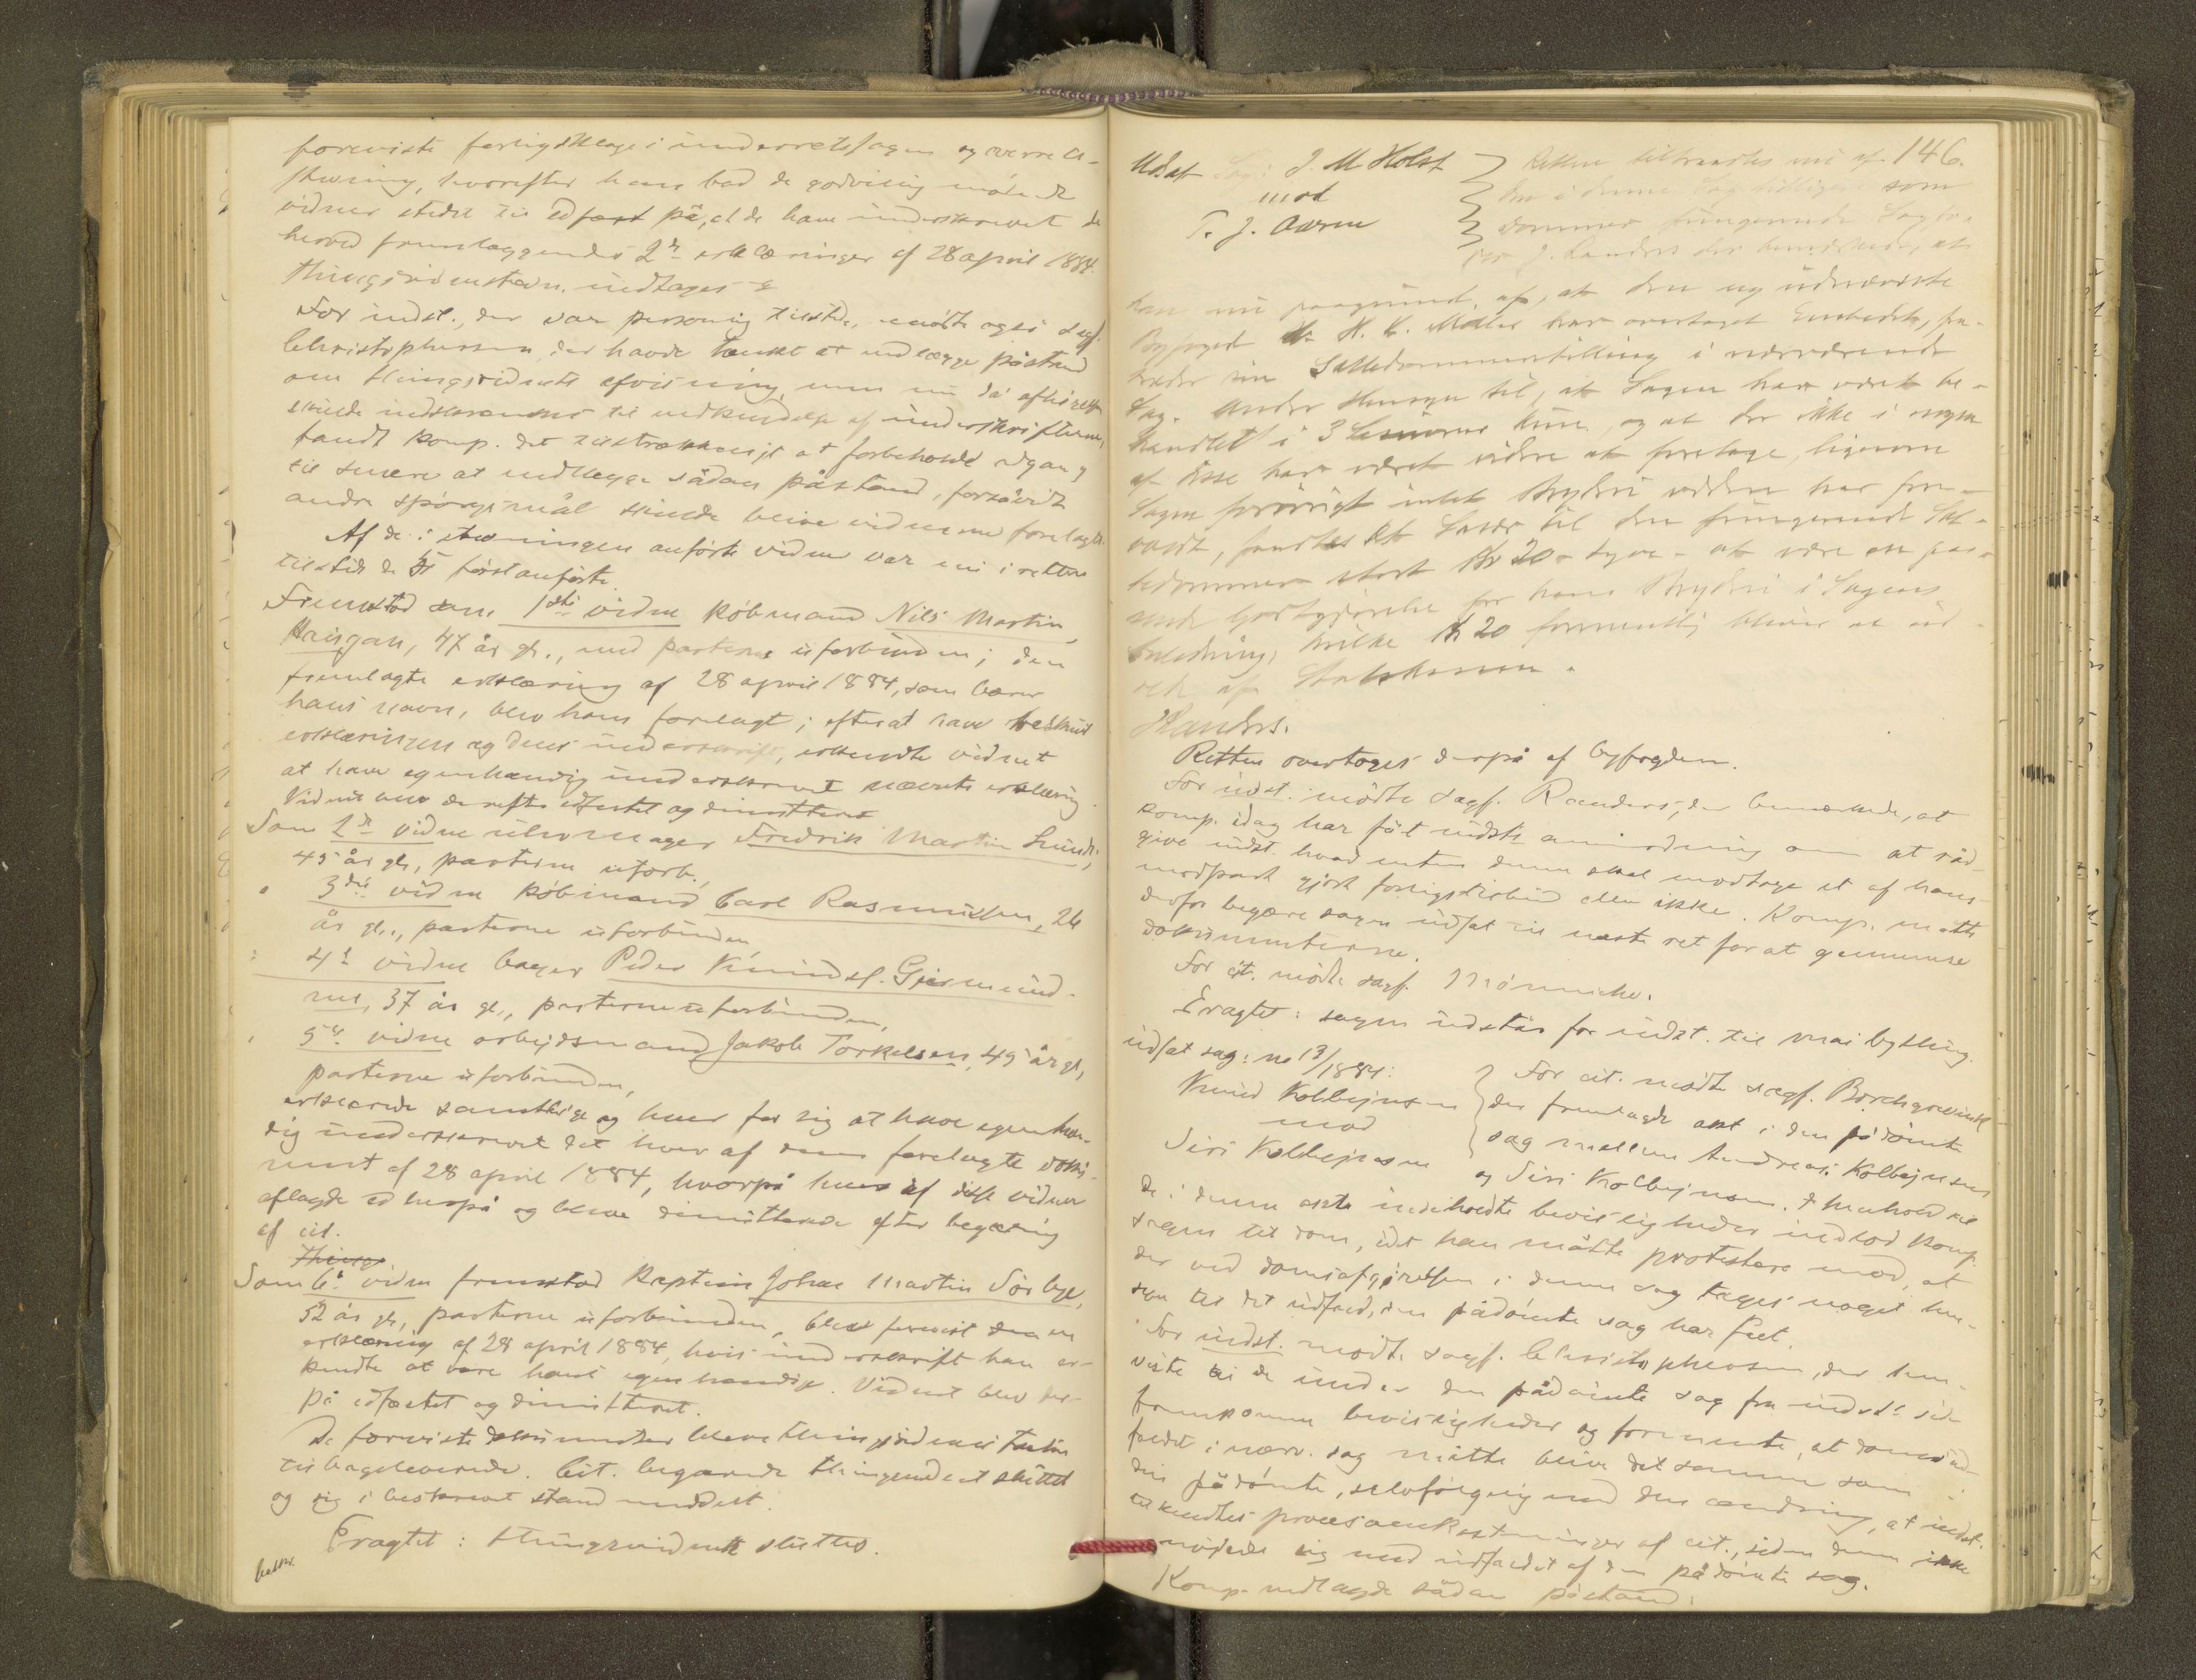 foreviste forligsklage i underretssagen og overret-
stevning, hvorefter han bad de godvillig mødende
vidner stedet til edfæst på, at de have underskrevet de
herved fremlæggendes 2de erklæringer af 28 april 1884.
thingsvidnestevn. indtages
For indst., der var personlig tilstede, mødte også sagf.
Christophersen, der havde tænkt at nedlægge påstand
om thingsvidnets afvisning, men nu då
skulde indskrænkes til vedkjendelse af underskrifterne,
fandt komp. det tilstrækkeligt at forbeholde adgang
til senere at nedlægge sådan påstand, forsåvidt
andre spørgsmål skulde blive vidnerne forelagte.
Af de i stevningen anførte vidner var nu i retten
tilstede de 5 førstanførte.
Fremstod som 1ste vidne købmand Nils Martin
47 år gl., med parterne uforbunden; den
fremlagte erklæring af 28 april 1884, som bærer
hans navn, blev ham forelagt; efterat have beskuet
erklæringen og dens underskrift, erkjendte vidnet
at have egenhændig underskrevet nævnte erklæring.
Vidnet blev derefter edfæstet og dimitteret
Som 2det vidne uhrmager Fredrik Martin Lund,
45 år gl., parterne uforb.,
3die vidne købmand Carl Rasmussen, 26
år gl., parterne uforbunden
4de vidne bager Peder
37 år gl., parterne uforbunden,
5te vidne arbejdsmand Jakob Torkelsen, 49 år gl.,
parterne uforbunden,
erklærede samtlige og hver for sig at have egenhæn-
dig underskrevet det hver af dem forelagte doku-
ment af 28 april 1884, hvorpå hver af disse vidner
aflagde ed herpå og bleve dimitterede efter begæring
af cit.
Things
Som 6te vidne fremstod kaptein Johan Martin Sørbye,
52 år gl., parterne uforbunden, blev forevist den en
erklæring af 28 april 1884, hvis underskrift han er-
kendte at være hans egenhændige. Vidnet blev der-
på edfæstet og dimitteret.
De foreviste dokumenter bleve
tilbageleverede. Cit. begærede thingsvidnet sluttet
og sig i beskrevet stand meddelt.
Eragtet: thingsvidnet sluttes.
beskr.
146.
Udsat Sag: J. M Holst
mod
T. J. Aarre
Retten betraadtes nu af
den i denne Sag tidligere som
dommer fungerende Sagfø-
rer J. Randers der bemærkede, at
han nu paagrund af, at den ny udnævnte
Byfoged H. K. Møller har overtaget Embedet, fra-
træder sin Sættedommerstilling i nærværende
Sag. Under Hensyn til, at Sagen har været be-
handlet i 3 Sessioner kun, og at der ikke i nogen
af disse har været videre at foretage, ligesom
Sagen forøvrigt intet Bryderi videre har foraar-
saget, fandtes et Salær til den fungerende Sæt-
tedommer stort Kr 20 - tyve - at være en pas-
sende Godtgjørelse for hans Bryderi i Sagens
Anledning, hvilke Kr 20 formentlig bliver at ud-
rede af Statskassen.
Randers.
Retten overtoges derpå af byfogden.
For indst. mødte sagf. Randers, der bemærkede, at
komp. idag har fåt indsts anmodning om at råd-
give indst. hvad enten denne skal modtage et af hans
modpart gjort forligstilbud eller ikke. Komp. måtte
derfor begære sagen udsat til næste ret for at gennemse
dokumenterne.
For cit. mødte sagf. Mönniche.
Eragtet: sagen udstår for indst. til mai bything.
udsat sag: no 13/1884:
Knud Kolbejnsen
mod
Siri Kolbejnsen
For cit. mødte sagf. Borchgrevink
der fremlagde akt i den pådømte
sag mellem Andreas Kolbejnsen
og Siri Kolbejnsen. I henhold til
de i denne akt indeholdte bevisligheder indlod komp.
sagen til dom, idet han måtte protestere mod, at
der ved domsafgjørelsen i denne sag tages noget hen-
syn til det udfald, den pådømte sag har fået.
For indst. mødte sagf. Christophersen, der hen-
viste til de under den pådømte sag fra indsts side
fremkomne bevisligheder og formente, at domsud-
faldet i nærv. sag måtte blive det samme som i
den pådømte, selvfølgelig med den ændring, at indst.
tilkendtes procesomkostninger af cit., siden denne ikke
nøjede sig med udfaldet af den pådømte sag.
Komp. nedlagde sådan påstand.